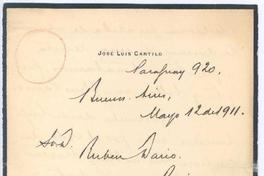 JOSÉ LUIS CANTILO
Paraguay 920.
Buenos Aires,
Mayo 12 de 1911.
Sor D.
Ruben Dario.